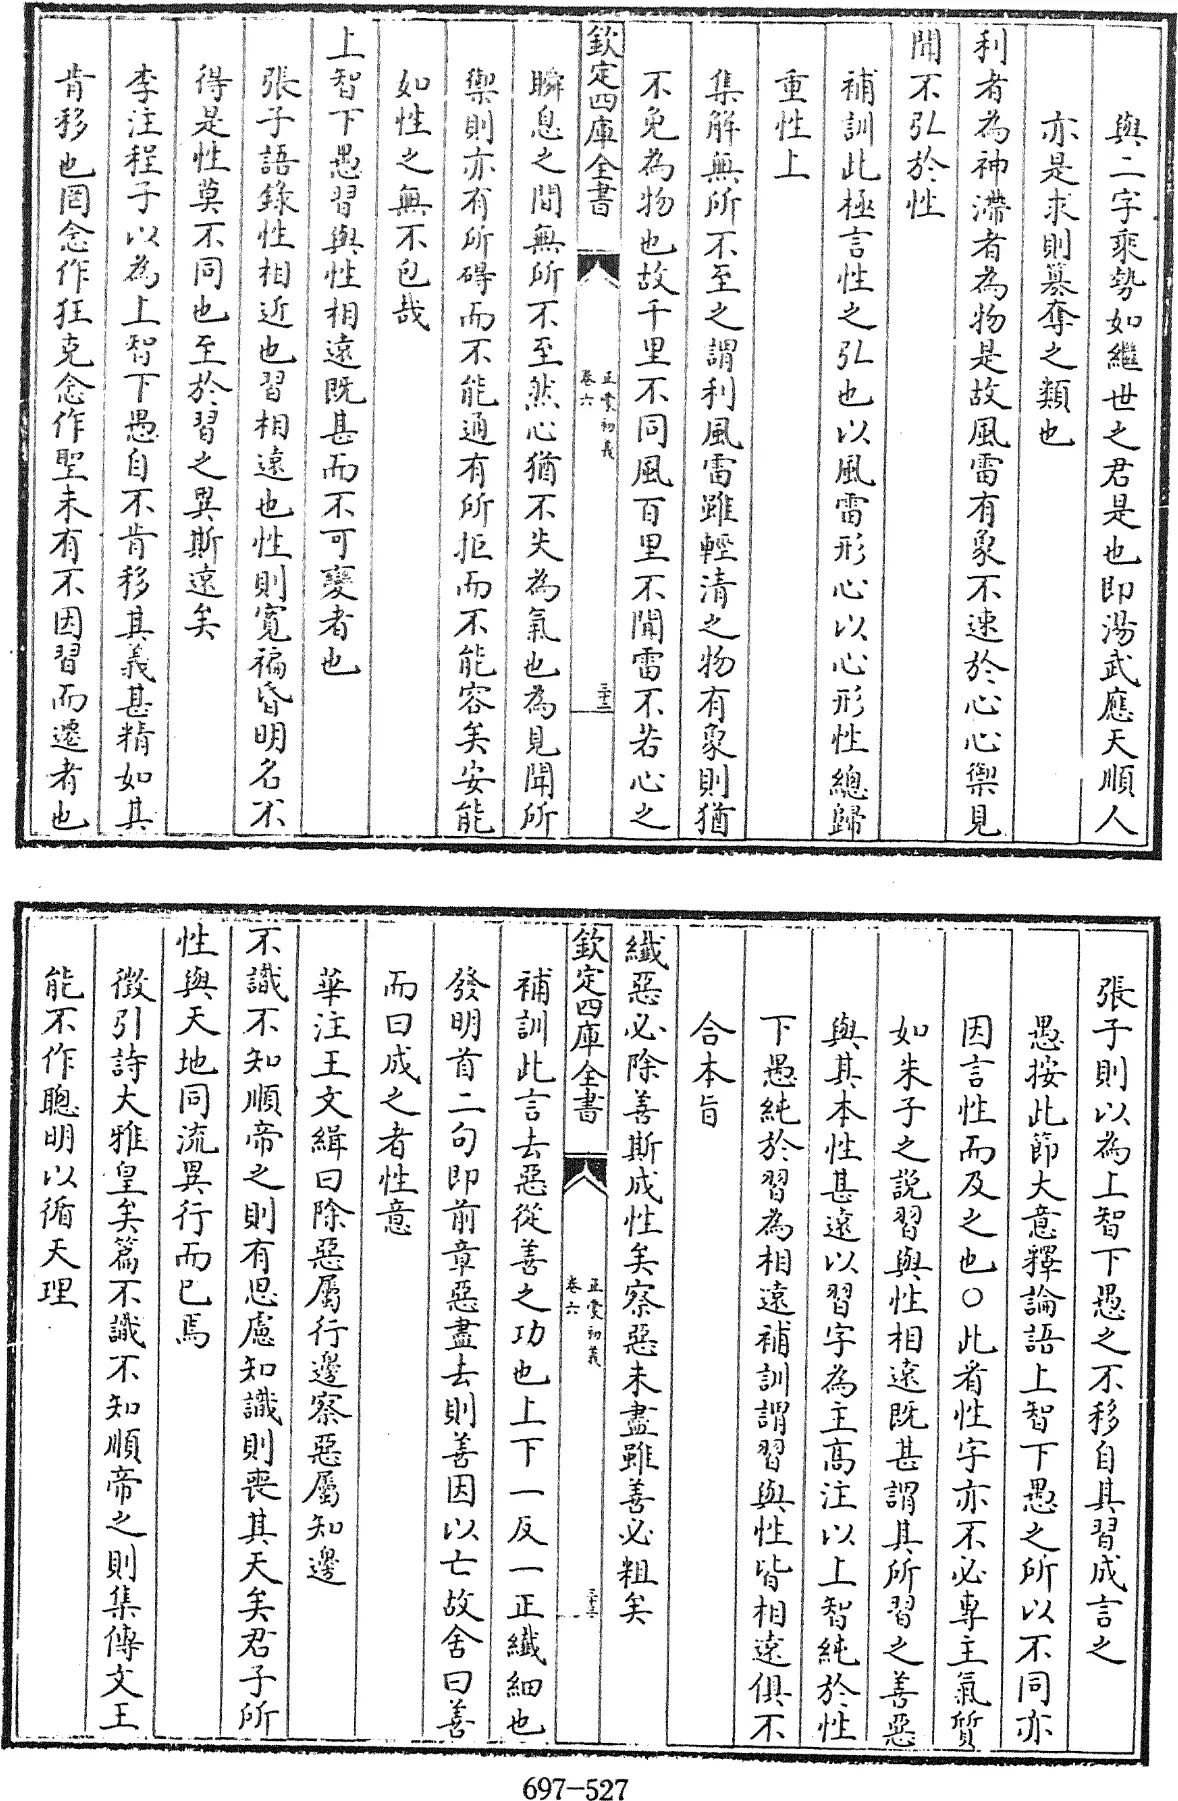 與二字乘勢如繼世之君是也即湯武應天順人
亦是求則篡奪之類也
利者為神滯者為物是故風雷有象不速於心心禦見
聞不弘於性
補訓此極言性之弘也以風雷形心以心形性總歸
重性上
集解無所不至之謂利風雷雖輕清之物有象則猶
不免為物也故千里不同風百里不聞雷不若心之
欽定四庫全書
正蒙初義
卷六
三十二
瞬息之間無所不至然心猶不失為氣也為見聞所
禦則亦有所碍而不能通有所拒而不能容矣安能
如性之無不包哉
上智下愚習與性相遠既甚而不可變者也
張子語錄性相近也習相遠也性則寬褊昏明名不
得是性莫不同也至於習之異斯遠矣
李注程子以為上智下愚自不肯移其義甚精如其
肯移也罔念作狂克念作聖未有不因習而遷者也
張子則以為上智下愚之不移自其習成言之
愚按此節大意釋論語上智下愚之所以不同亦
因言性而及之也○此者性字亦不必專主氣質
如朱子之說習與性相遠既甚謂其所習之善惡
與其本性甚遠以習字為主高注以上智純於性
下愚純於習為相遠補訓謂習與性皆相遠俱不
合本旨
纖惡必除善斯成性矣察惡未盡雖善必粗矣
欽定四庫全書
正蒙初義
卷六
三十三
補訓此言去惡從善之功也上下一反一正纖細也
發明首二句即前章惡盡去則善因以亡故舍曰善
而曰成之者性意
華注王文緝曰除惡屬行邊察惡屬知邊
不識不知順帝之則有思慮知識則喪其天矣君子所
性與天地同流異行而已焉
徵引詩大雅皇矣篇不識不知順帝之則集傳文王
能不作聰明以循天理
697-527